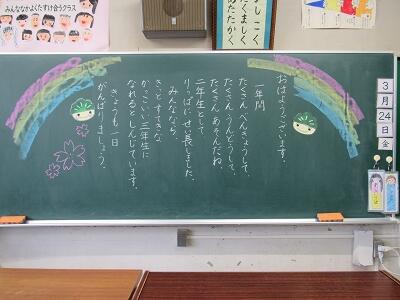 みんななかよくたすけ合うクラス
かしこく
たくましく
あたたかく
おはようございます。
一年間
たくさん べんきょうして、
たくさん うんどうして、
たくさん あそんだね。
二年生として
りっぱに せい長しました。
みんななら、
きっと すてきな
かっこいい 三年生に
なれるとしんじています。
きょうも一日
がんばりましょう。
3月24日金